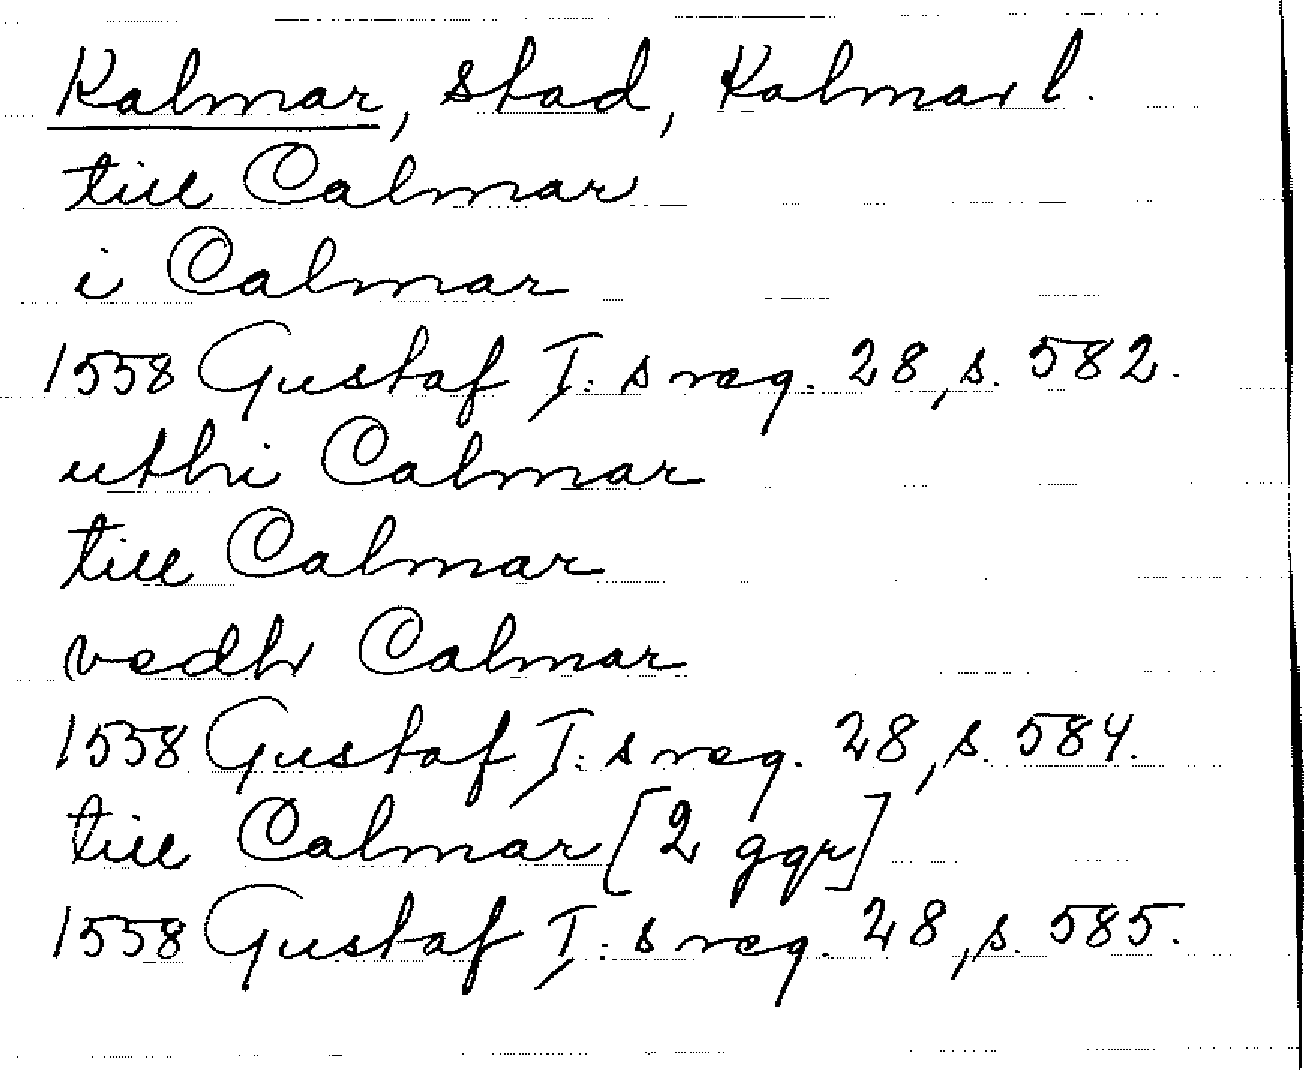 Kalmar, stad, Kalmar l.
till Calmar
i Calmar
1558 Gustaf I:s reg. 28, s. 582.
uthi Calmar
till Calmar
vedh Calmar
1558 Gustaf I:s reg. 28, s. 584.
till Calmar [2 ggr]
1558 Gustaf I:s reg. 28, s. 585.